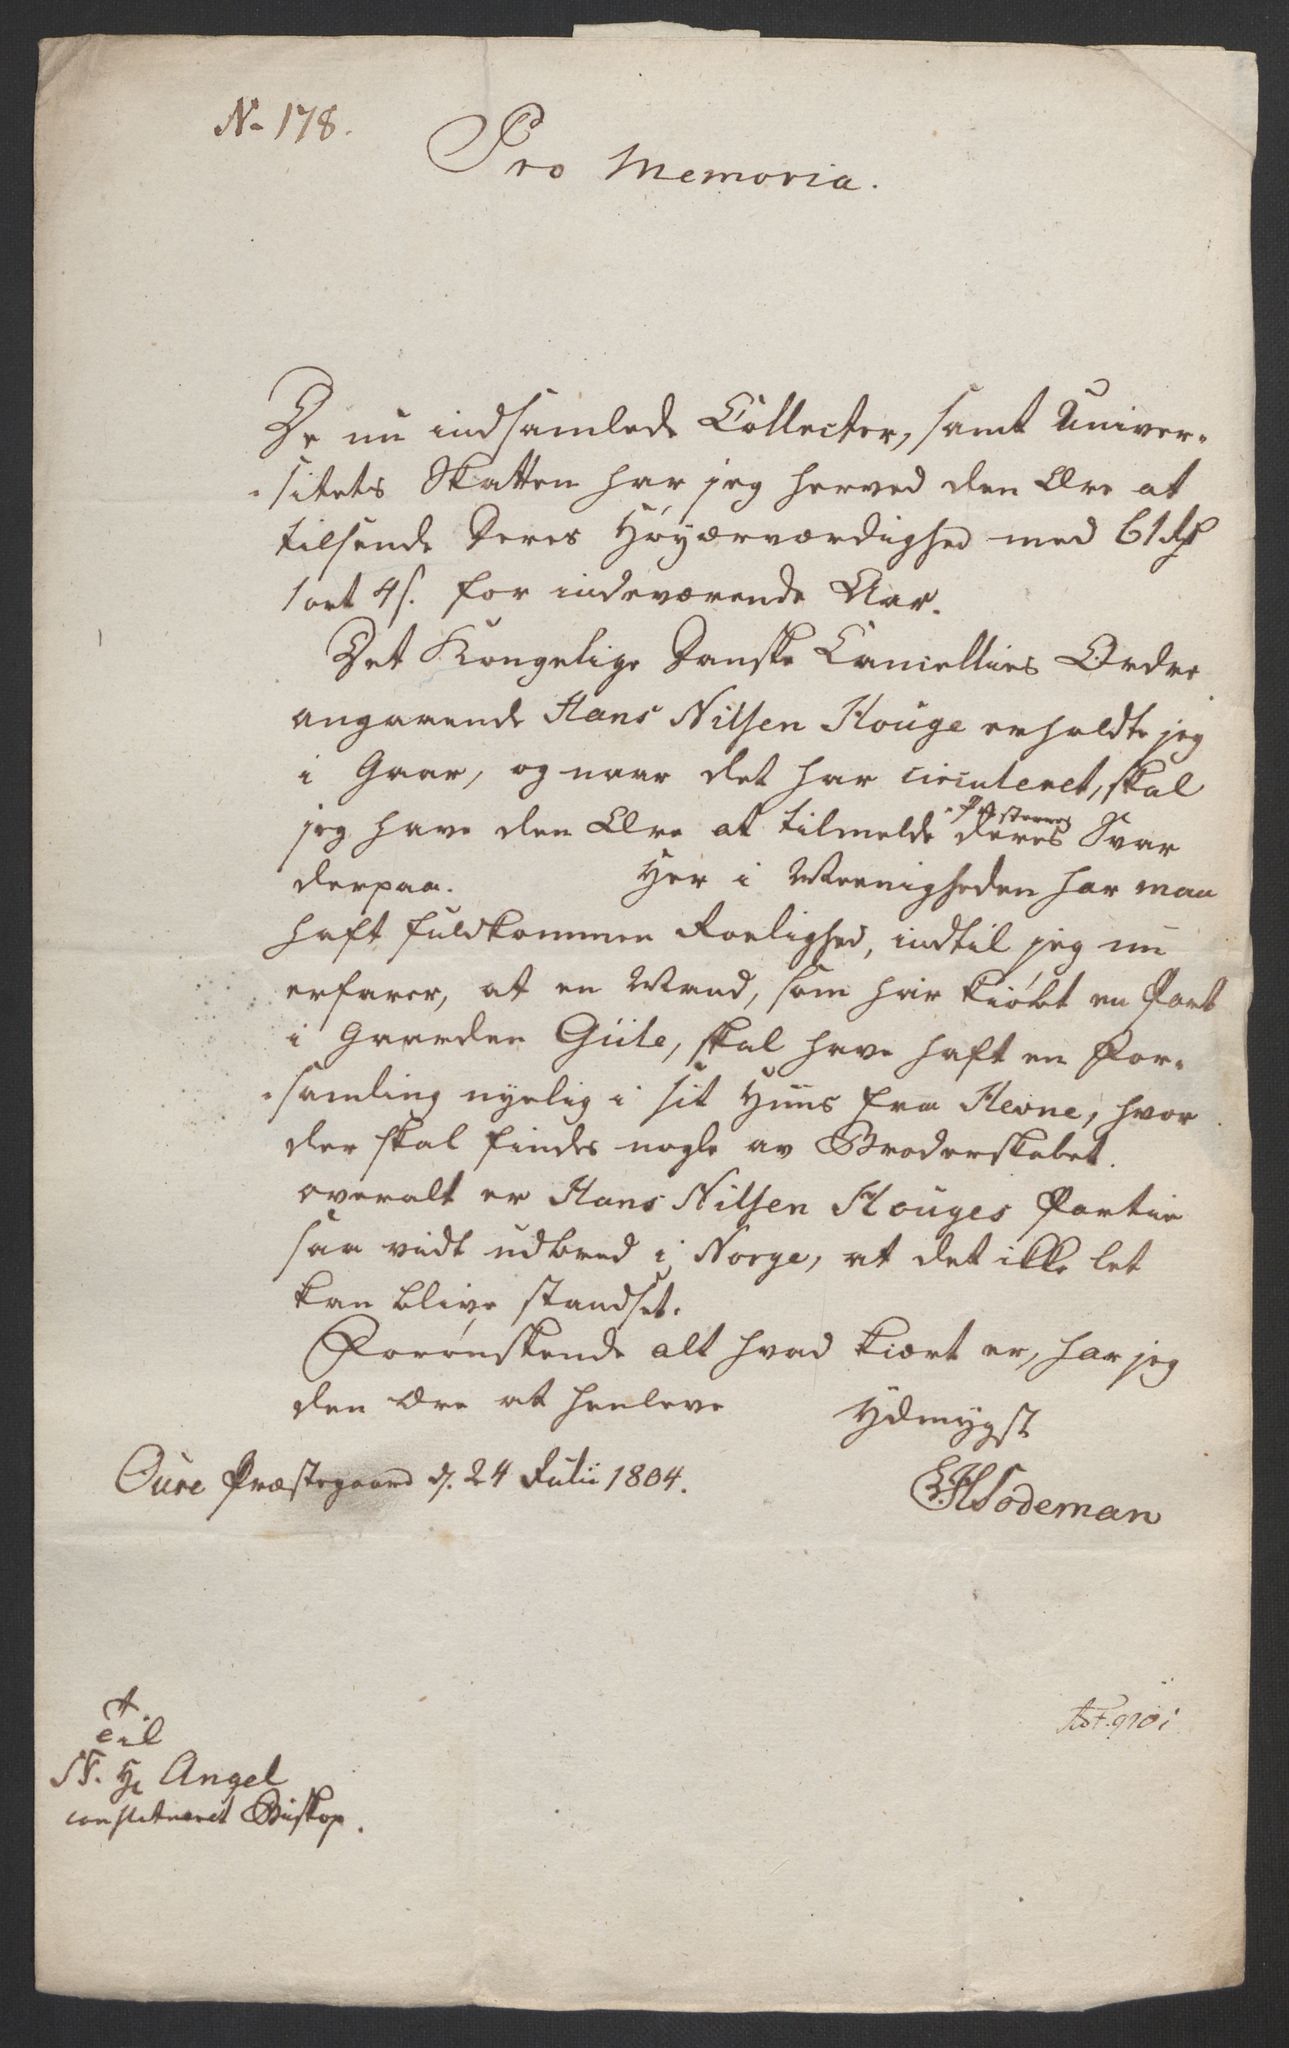 N. 178.
Pro Memoria.
De nu indsamlede Collecter, samt Univer-
-sitets Skatten har jeg herved den Ære at
tilsende Deres Høyærværdighed med 61 Rd
1 ort 4 s. for indeværende Aar.
Det Kongelige Danske Cancellies Ordre
angaaende Hans Nilsen Houge erholdte jeg
i Gaar, og naar det har circuleret, skal
jeg have den Ære at tilmelde Præsternes deres Svar
derpaa. Her i Meenigheden har man
haft fuldkommen Roelighed, indtil jeg nu
erfarer, at en Mand, som har kiøbt en Part
i Gaarden Güle, skal have haft en For-
-samling nyelig i sit Huus fra Hevne, hvor
der skal findes nogle av Broderskabet.
overalt er Hans Nilsen Houges Partie
saa vidt udbred i Norge, at det ikke let
kan blive standset.
Forønskende alt hvad kiært er, har jeg
den Ære at henleve Ydmygst
Oure Præstegaard d. 24 Julii 1804.
Sodeman
til
S. T. Hr Angel
constitueret Biskop.